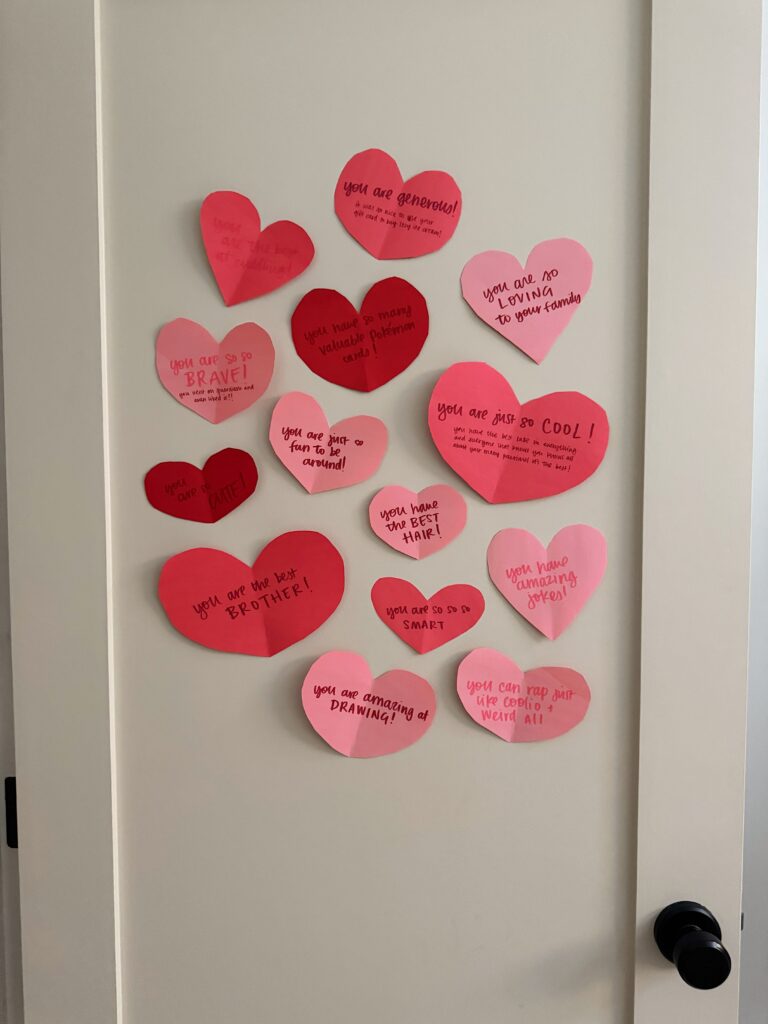 you are generous!
it was so nice to use your
gift card to buy
you
are the best
at
you are so
LOVING
to your family
you have so many
valuable Pokémon
cards!
you are so so
BRAVE!
you went on
and
even liked it!!
you are just so COOL!
you have the best taste in everything
and everyone that knows you knows all
about your many passions! it's the best!
you are just so
fun to be
around!
you
are so CUTE!
you have
the BEST
HAIR!
you have
amazing
jokes!
you are the best
BROTHER!
you are so so so
SMART
you are amazing at
DRAWING!
you can rap just
like coolio +
weird al!